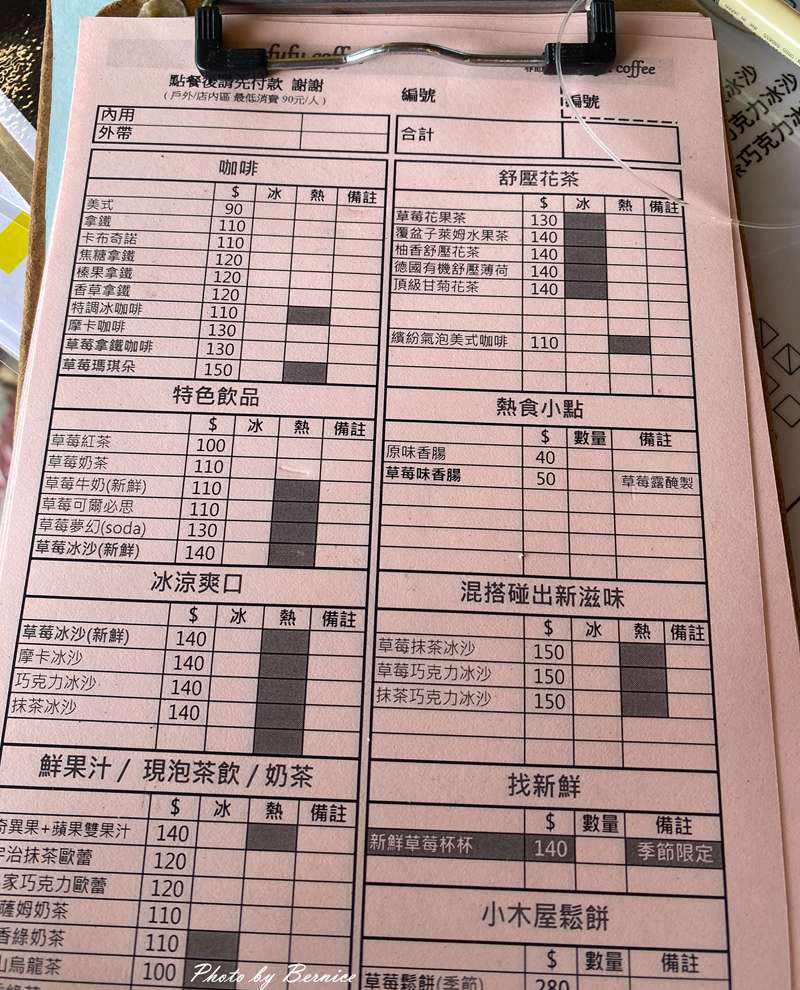 coffee
點餐後請先付款 謝謝
(戶外/店內區 最低消費 90元/人)
編號
編號
內用
外帶
合計
咖啡
$ 冰 熱 備註
美式 90
拿鐵 110
卡布奇諾 110
焦糖拿鐵 120
榛果拿鐵 120
香草拿鐵 120
特調冰咖啡 110
摩卡咖啡 130
草莓拿鐵咖啡 130
草莓瑪琪朵 150
特色飲品
$ 冰 熱 備註
草莓紅茶 100
草莓奶茶 110
草莓牛奶(新鮮) 110
草莓可爾必思 110
草莓夢幻(soda) 130
草莓冰沙(新鮮) 140
冰涼爽口
$ 冰 熱 備註
草莓冰沙(新鮮) 140
摩卡冰沙 140
巧克力冰沙 140
抹茶冰沙 140
鮮果汁 / 現泡茶飲 / 奶茶
$ 冰 熱 備註
奇異果+蘋果雙果汁 140
宇治抹茶歐蕾 120
家巧克力歐蕾 120
薩姆奶茶 110
香綠奶茶 110
山烏龍茶 100
舒壓花茶
$ 冰 熱 備註
草莓花果茶 130
覆盆子萊姆水果茶 140
柚香舒壓花茶 140
德國有機舒壓薄荷 140
頂級甘菊花茶 140
繽紛氣泡美式咖啡 110
熱食小點
$ 數量 備註
原味香腸 40
草莓味香腸 50 草莓露醃製
混搭碰出新滋味
$ 冰 熱 備註
草莓抹茶冰沙 150
草莓巧克力冰沙 150
抹茶巧克力冰沙 150
找新鮮
$ 數量 備註
新鮮草莓杯杯 140 季節限定
小木屋鬆餅
$ 數量 備註
草莓鬆餅(季節) 280
冰沙
巧克力冰沙
巧克力冰
Photo by Bernice